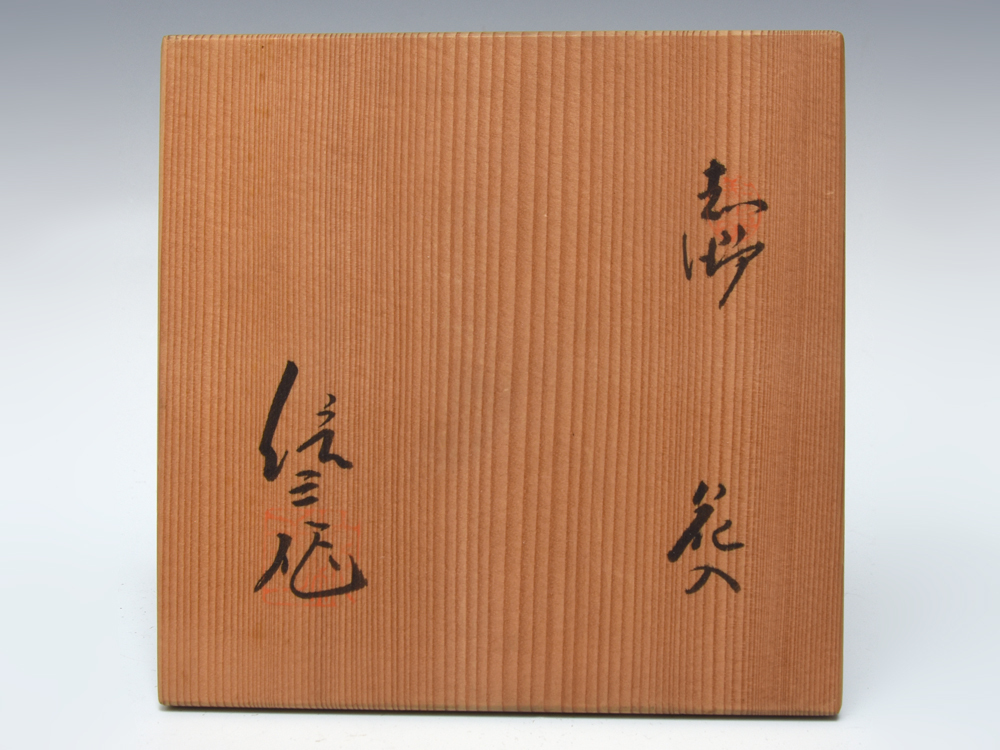 志野
花入
三作